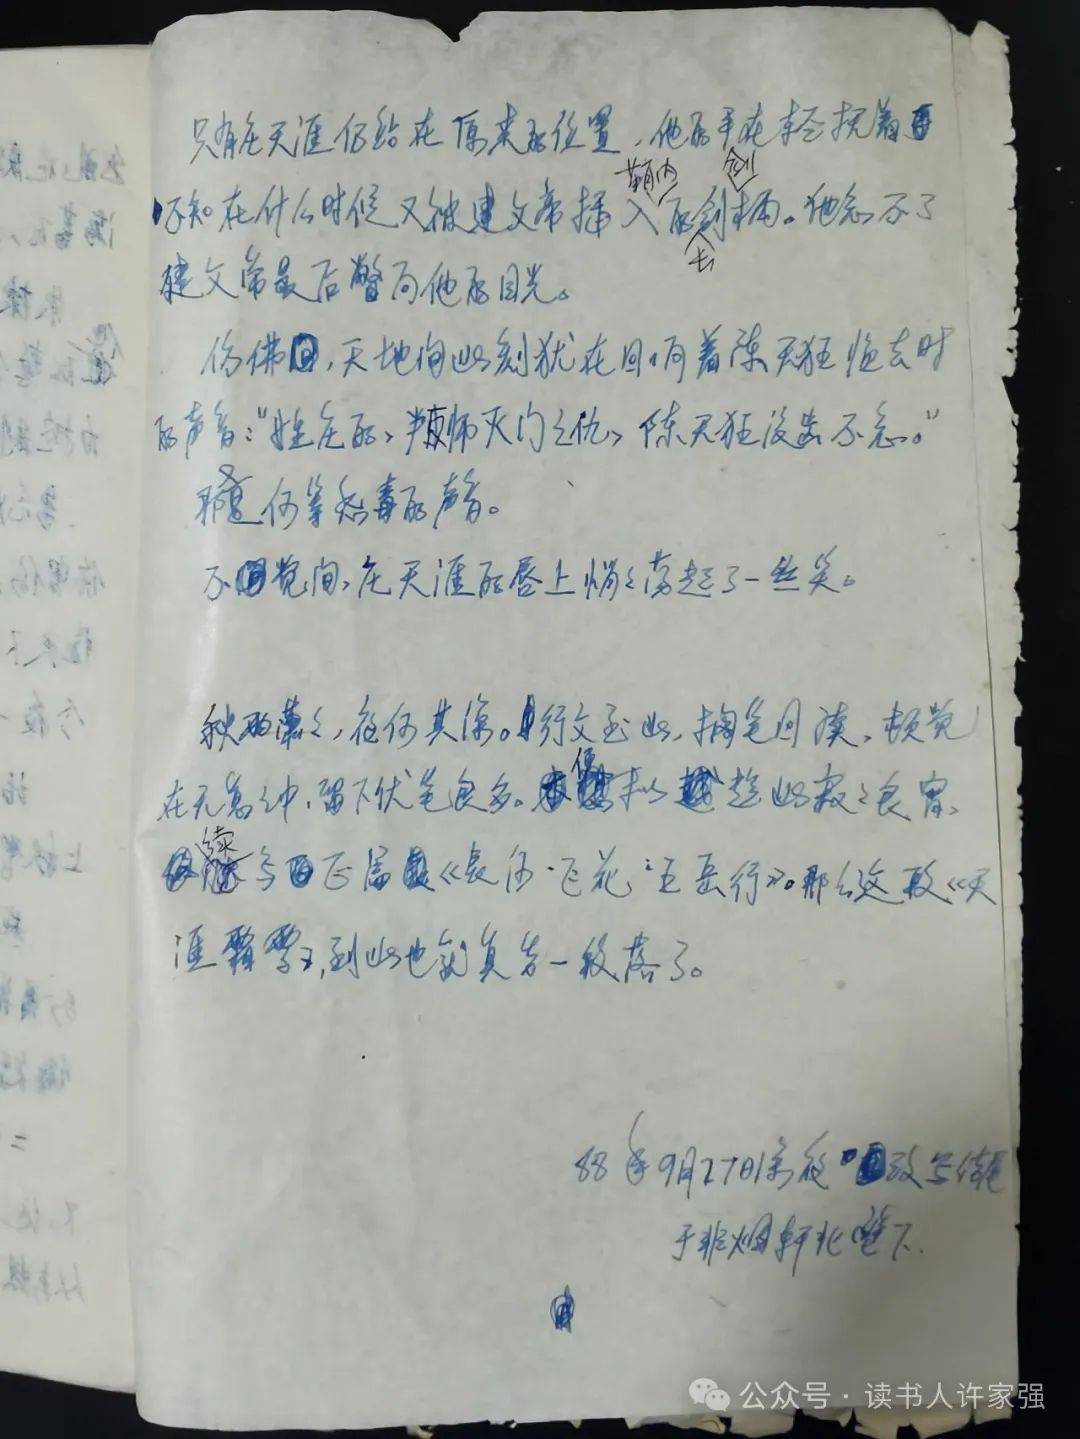 只有庄天涯仍站在原来的位置，他的手在轻抚着
鞘内 剑
不知在什么时候又被建文帝插入的剑柄。他忘不了
去
建文帝最后瞥向他的目光。
仿佛，天地间此刻犹在回响着陈天狂临去时
的声音："姓庄的，杀师灭门之仇，陈天狂没齿不忘。"
那是何等怨毒的声音。
不觉间，庄天涯的唇上悄悄荡起了一丝笑。
秋雨潇潇，夜何其深。行文至此，掷笔回读，顿觉
在无意中，留下伏笔良多。便拟趁此寂寂良宵，
续写正篇《长河·飞花·五岳行》。那么这段《天
涯霜雪》，到此也就算告一段落了。
88年9月27日深夜 改写结尾
于非烟轩北窗下.
公众号·读书人许家强